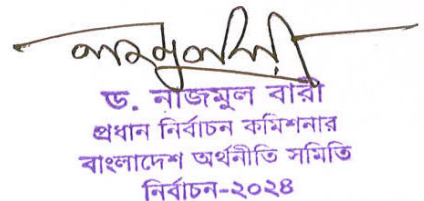 ড. নাজমুল বারী
প্রধান নির্বাচন কমিশনার
বাংলাদেশ অর্থনীতি সমিতি
নির্বাচন-২০২৪